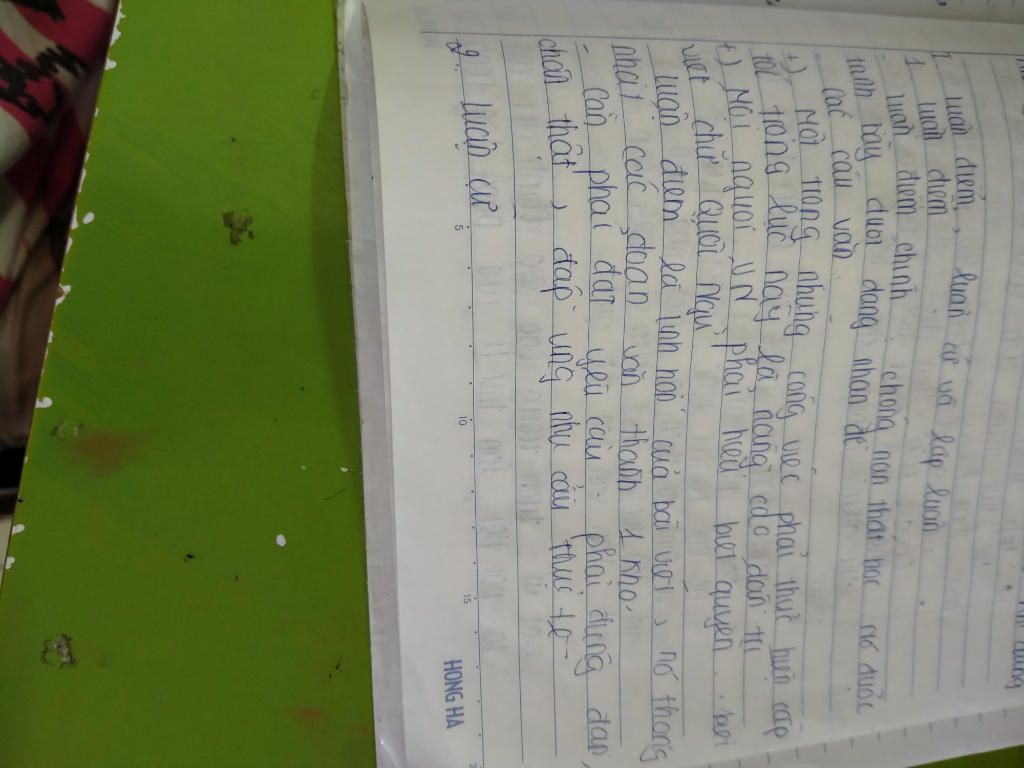 I, luận điểm, luận cứ và lập luận.
1 luận điểm
- luận điểm chính : chống nạn thất học nó được
trình bày dưới dạng nhan đề
- các câu văn.
+) Một trong những công việc phải thực hiện cấp
tốc trong lúc này là nâng cao dân trí
+) Mọi người VN phải hiểu biết quyền . biết
viết chữ Quốc Ngữ
- luận điểm là linh hồn của bài viết, nó thống
nhất các đoạn văn thành 1 khối.
- cần phải đạt yêu cầu - phải đúng đắn,
chân thật, đáp ứng nhu cầu thực tế -
2. Luận cứ
5 10 15
HONG HA